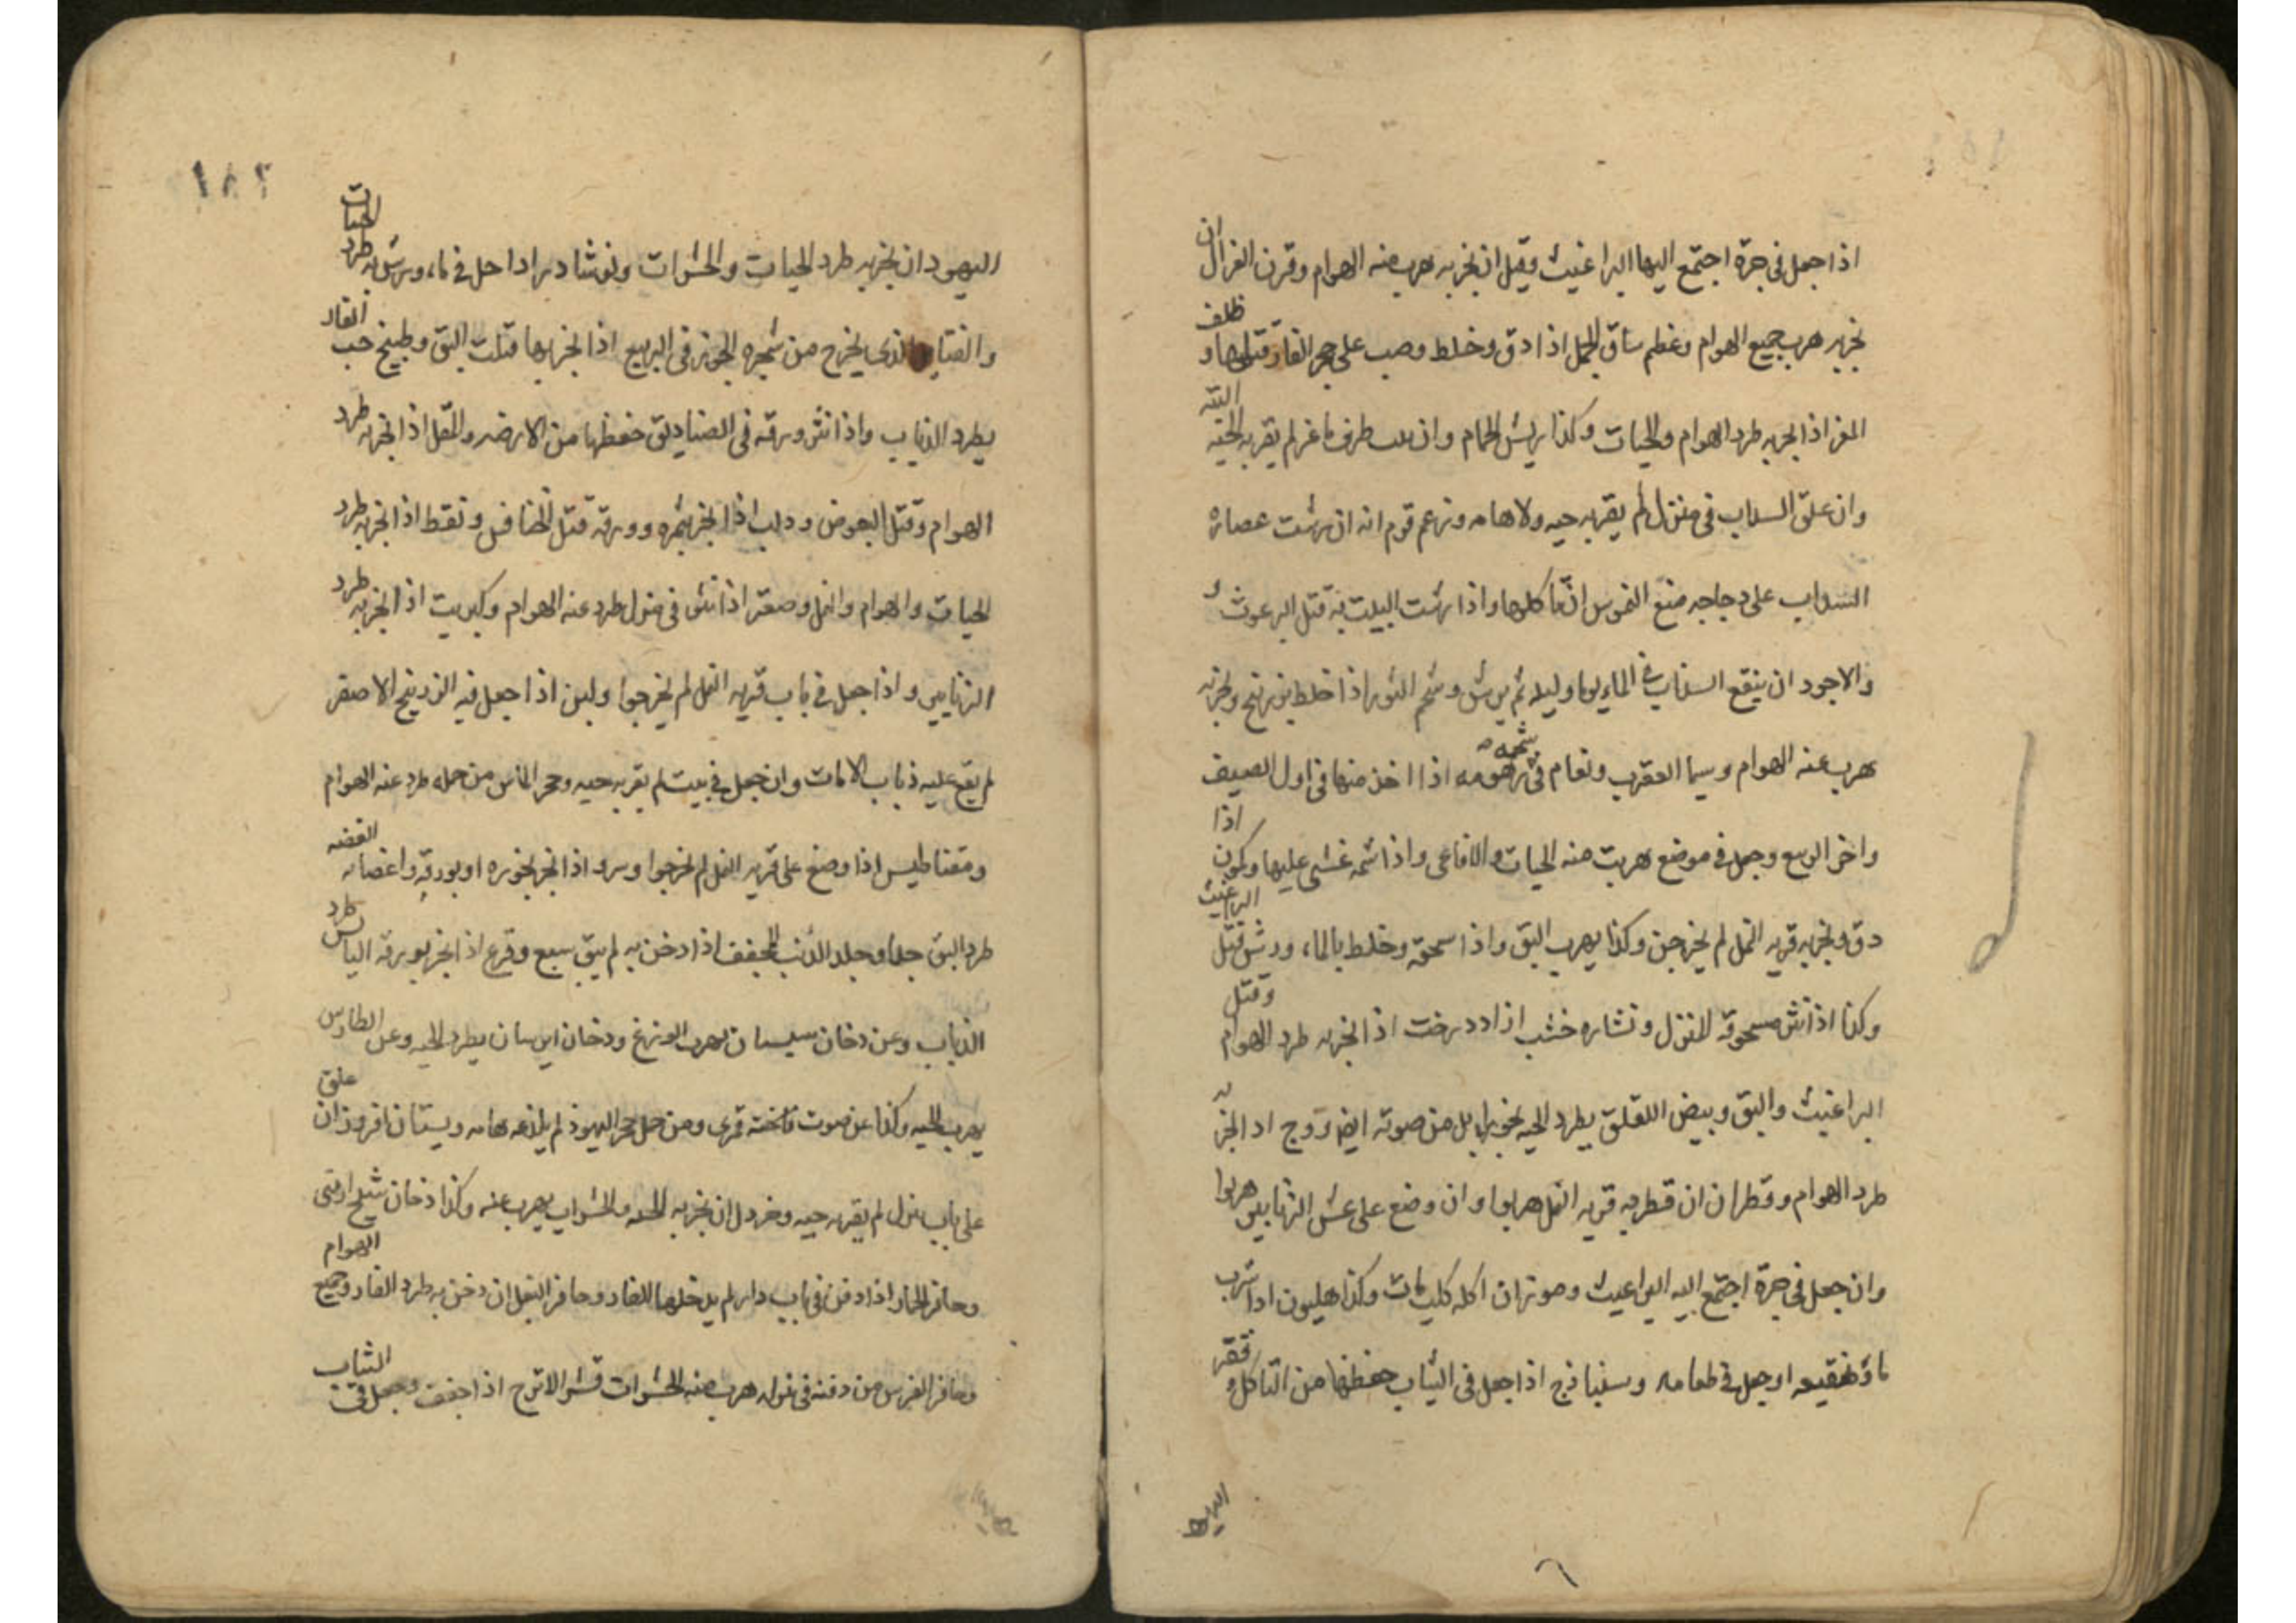 اذا جعل فى حرة اجتمع اليها البراغيث وقيل ان بخر به هرب منه الهوام وقرن الغزال ان
بخر به هرب جميع الهوام وعظم ساق الجمل اذا دق وخلط وصب على جحر الفار قتلها و ظلف
المعز اذا بخر به طرد الهوام والحيات وكذا ريش الحمام وان طرف ماعز لم يقربه الحية البتة
وان علق السداب فى منزل لم يقربه حيه ولا هامه وزعم قوم انه ان رشت عصارة
السداب على دجاجه منع النمس ان ياكلها واذا رشت البيت به قتل البرغوث
والاجود ان ينقع السداب فى الماء يوما وليله ثم يرش وشحم الثور اذا خلط بزرنيخ وبخر به
هرب عنه الهوام وسيما العقرب وثمام فى شحمه زهومه اذا اخذ منها فى اول الصيف
واخر الربيع وجعل فى موضع هربت منه الحيات والافاعى واذا شمه غشى عليها وكمون اذا
دق وبخر به قريه النمل لم يخرجن وكذا يهرب البق واذا سحقه وخلط بالماء ورش قتل البراغيث
وكذا اذا نثر مسحوقه المنزل ونشاره خشب ازاددرخت اذا بخر به طرد الهوام وقتل
البراغيث والبق وبيض اللقلق يطرد الحيه بخورا بل من صوته ايضا ووج اذا بخر به
طرد الهوام وقطران ان قطر به قريه النمل هربوا وان وضع على عش الزنابير هربوا
وان جعل فى حرة اجتمع اليه البراغيث وصوبر ان اكله كلب مات وكذا هليون اذا شرب
ماء نقيعه او جعل فى طعامه وسنباذج اذا جعل فى الثياب حفظها من التاكل و قفر
اليهود
اليهود ان بخر به طرد الحيات والحشرات ونوشادر اذا حل فى ماء ورش به طرد الحيات
الذى يخرج من شجره الجوز فى الربيع اذا بخر بها قتلت البق وطبيخ حب الغار
يطرد الذباب واذا نثر ورقه فى الصناديق حفظها من الارضه والمقل اذا بخر به طرد
الهوام وقتل البعوض ودلب اذا بخر بثمره وورقه قتل الخنافس ونفط اذا بخر به طرد
الحيات والهوام والنمل وصعتر اذا نثر فى منزل طرد عنه الهوام وكبريت اذا بخر به طرد
الزنابير واذا جعل فى باب قريه النمل لم يخرجوا ولبن اذا جعل فيه الزرنيخ الاصفر
لم يقع عليه ذباب الا مات وان جعل فى بيت لم يقربه حيه وحجر الماس من حمله طرد عنه الهوام
ومغناطيس اذا وضع على قريه النمل لم يخرجوا وسرو اذا بخر بجوزه او بورقه واغصانه الغضه
طرد البق جدا وجلد الذئب المجفف اذا دخن به لم يبق سبع وقرع اذا بخر بورقه اليابس طرد
الذباب وعن دخان سيسبان يهرب الوزغ ودخان ايرسا ن يطرد الحيه وعن الطاوس
يهرب الحيه وكذا عن صوت فاخته قمرى ومن حمل حجر اليهود لم يلدغه هامه وبستان افروز ان علق
على باب منزل لم يقربه حيه وخردل ان بخر به الحيه والحشرات يهرب عنه وكذا دخان شيح ارمنى
وحافر الحمار اذا دفن فى باب دار لم يدخلها الفار وحافر البغل ان دخن به طرد الفار وجميع الهوام
وحافر الفرس من دفنه فى منزله هرب منه الحشرات قشر الاترج اذا جفف وجعل فى الثياب